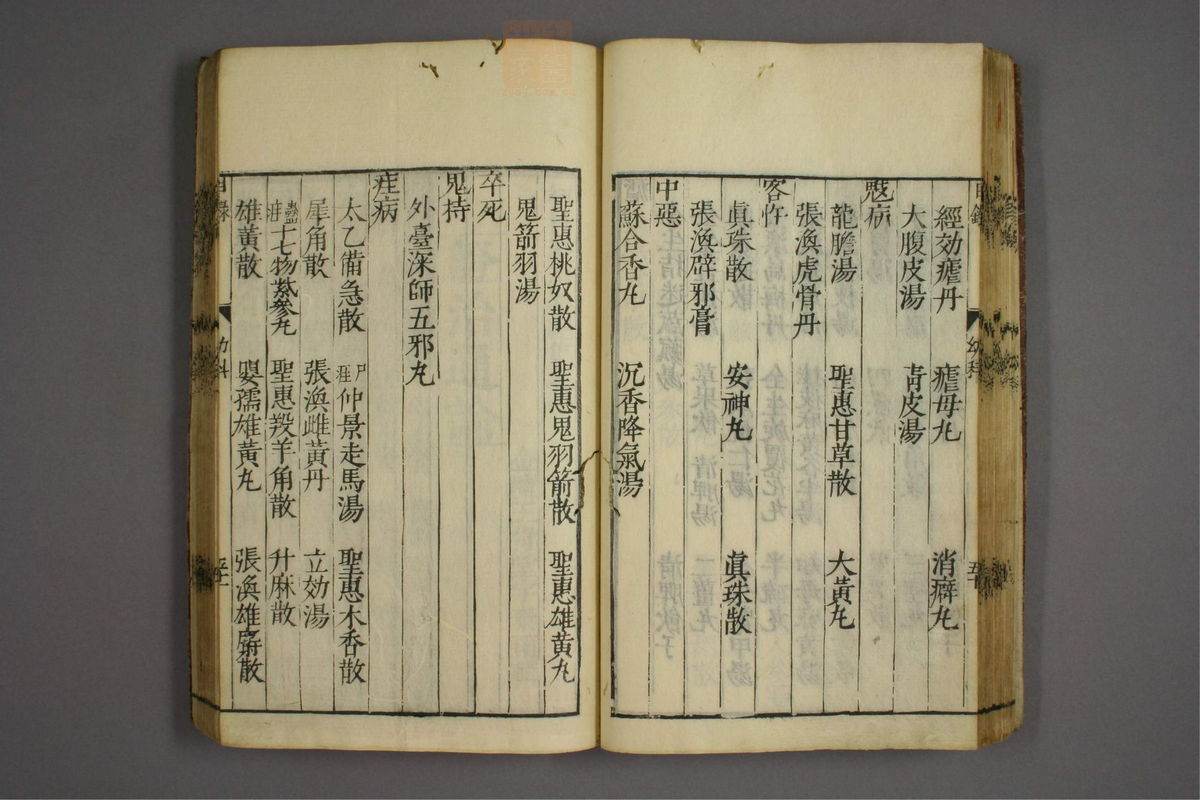 經効瘧丹 瘧母丸 消癖丸
大腹皮湯 靑皮湯
鬾病
龍膽湯 聖惠甘草散 大黃丸
張渙虎骨丹
客忤
眞珠散 安神丸 眞珠散
張渙辟邪膏
中惡
蘇合香丸 沉香降氣湯
聖惠桃奴散 聖惠鬼羽箭散 聖惠雄黃丸
鬼箭羽湯
卒死
鬼持
外臺深師五邪丸
疰病
太乙備急散 尸疰仲景走馬湯 聖惠木香散
犀角散 張渙雌黃丹 立効湯
蠱疰十七物紫參丸 聖惠羖羊角散 升麻散
雄黃散 嬰孺雄黃丸 張渙雄麝散
目錄 幼科 五十
目錄 幼科